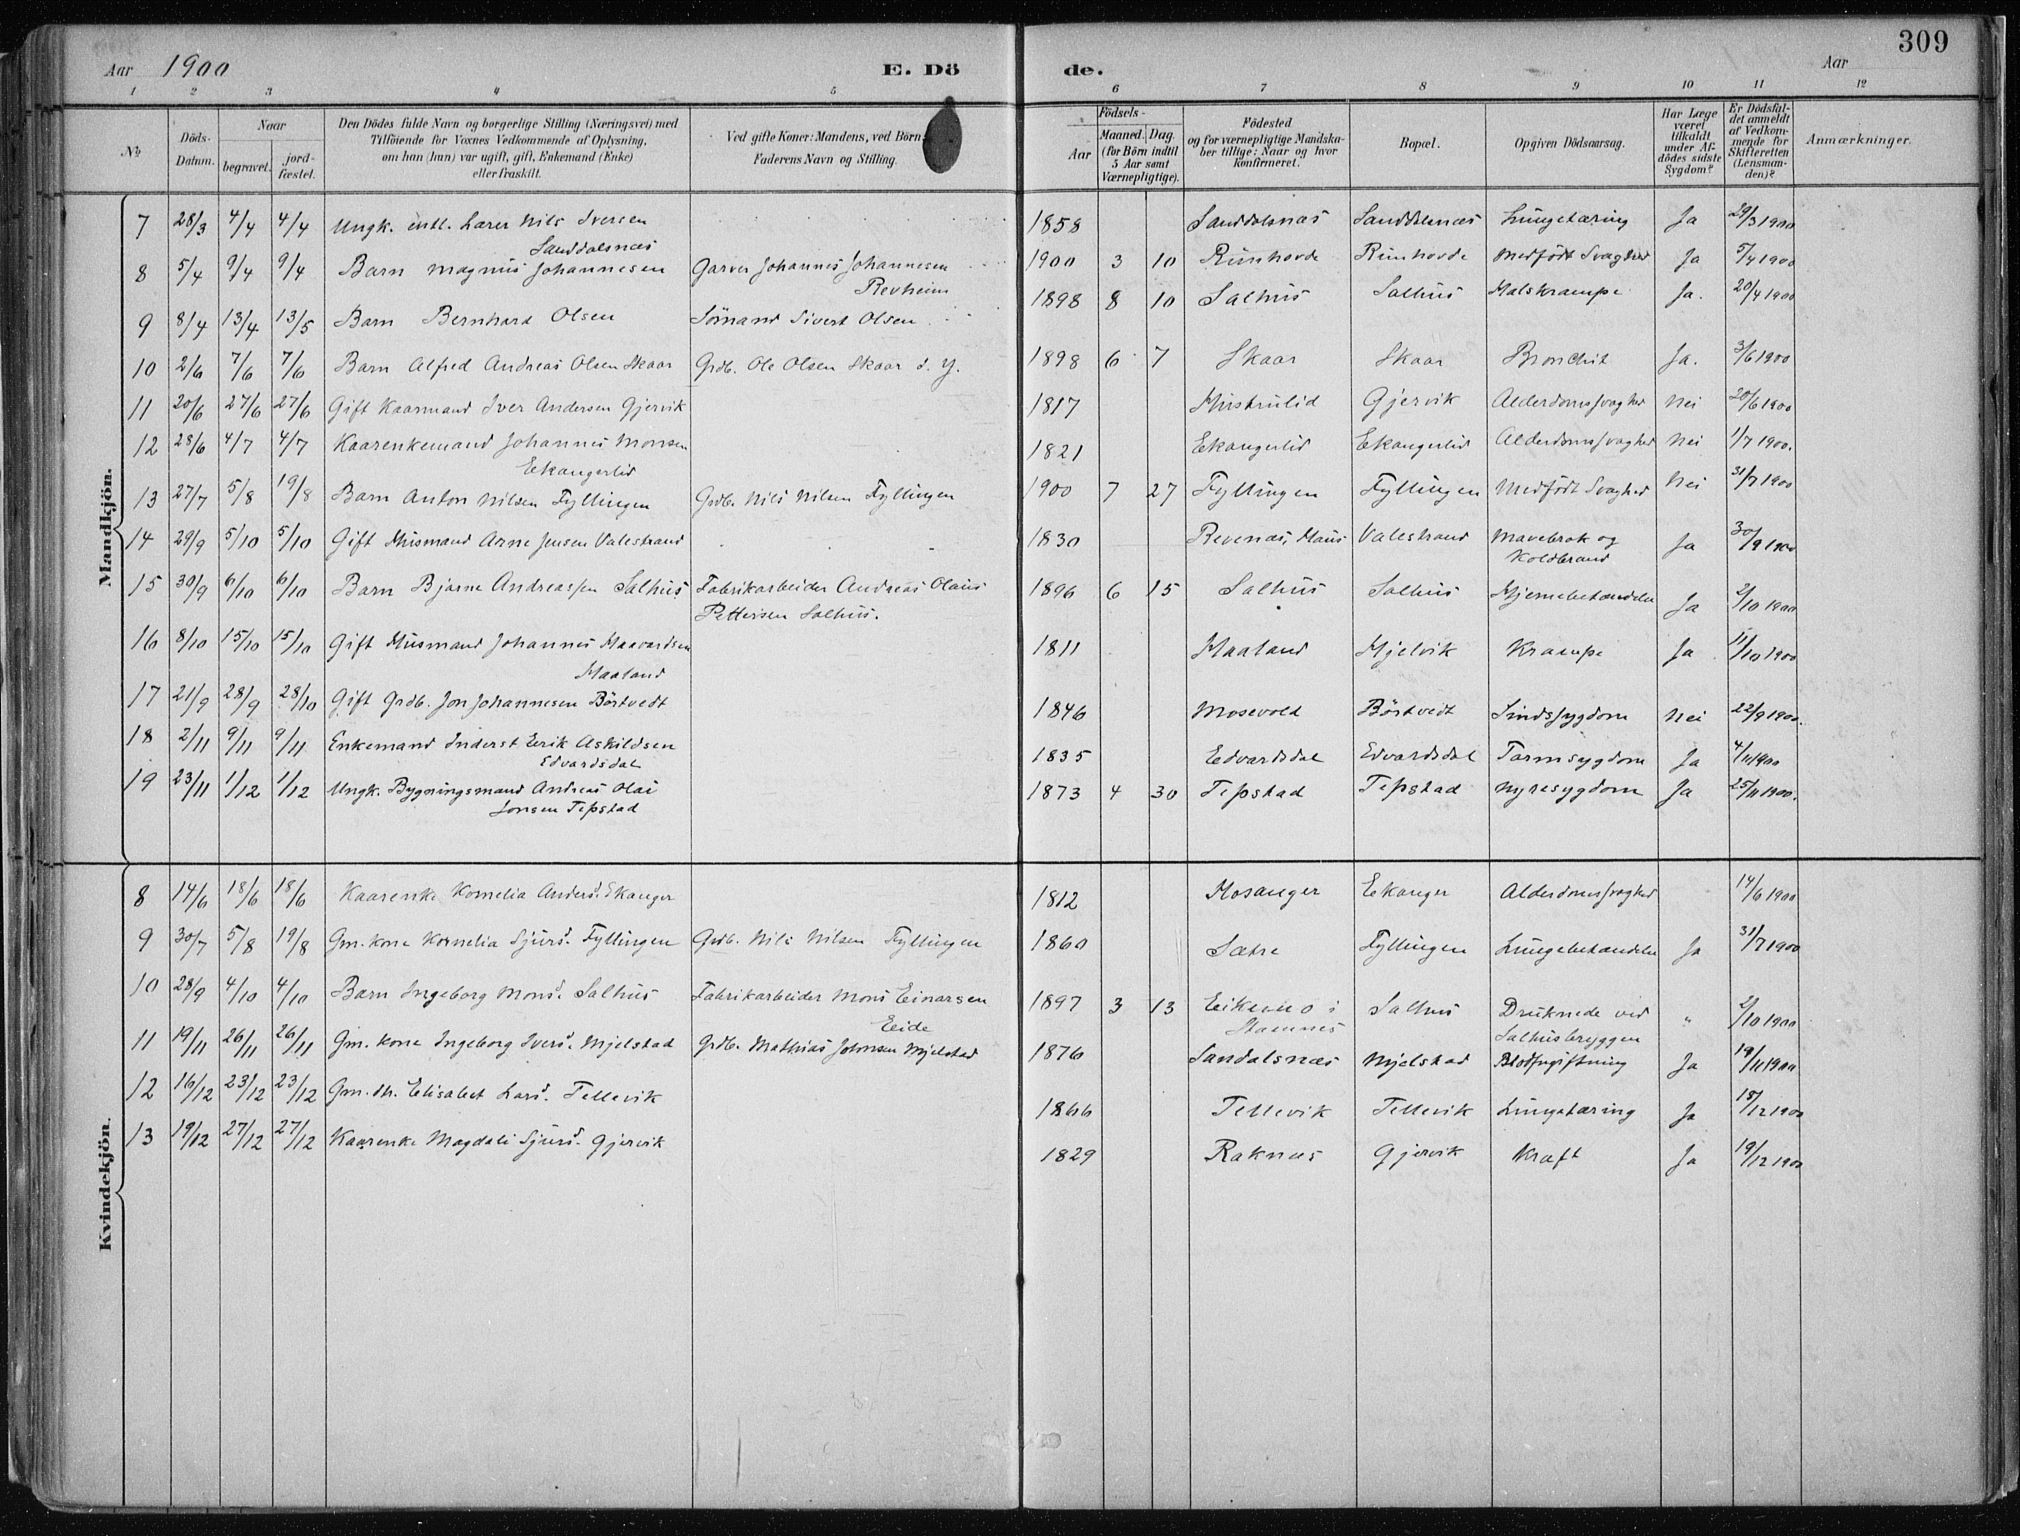 309
Aar 1900 E. Döde. Aar
1 2 3 4 5 6 7 8 9 10 11 12
No
Döds-Datum.
Naar
begravet.
jordfæstet.
Den Dödes fulde Navn og borgerlige Stilling (Næringsvei) med
Tilföiende for Voxnes Vedkommende af Oplysning,
om han (hun) var ugift, gift, Enkemand (Enke)
eller fraskilt.
Ved gifte Koner: Mandens, ved Börn:
Faderens Navn og Stilling.
Födsels-
Aar
Maaned. Dag.
(for Börn indtil
5 Aar samt
Værnepligtige).
Födested
og for værnepligtige Mandska-
ber tillige: Naar og hvor
konfirmeret.
Bopæl.
Opgiven Dödsaarsag.
Har Læge
været
tilkaldt
under Af-
dödes sidste
Sygdom?
Er Dödsfal-
det anmeldt
af Vedkom-
mende for
Skifteretten
(Lensman-
den)?
Anmærkninger.
Mandkjön.
7 28/3 4/4 4/4 Ungk. entl. Lærer Nils Iversen 1858 Sanddalsnæs Sanddalsnæs Lungetæring Ja 29/3 1900
Sanddalsnæs
8 5/4 9/4 9/4 Barn Magnus Johannesen Garver Johannes Johannesen 1900 3 10 Rimhovde Rimhovde Medfödt Svaghed Ja 5/4 1900
Revheim
9 8/4 13/4 13/5 Barn Bernhard Olsen Sömand Sivert Olsen 1898 8 10 Salhus Salhus Halskrampe Ja. 20/4 1900
10 2/6 7/6 7/6 Barn Alfred Andreas Olsen Skaar Grdb. Ole Olsen Skaar d. y. 1898 6 7 Skaar Skaar Bronchit Ja. 3/6 1900
11 20/6 27/6 27/6 Gift Kaarmand Iver Andersen Gjervik 1817 Hustrulid Gjervik Alderdomssvaghed Nei 20/6 1900
12 28/6 4/7 4/7 Kaarenkemand Johannes Monsen 1821 Ekangerlid Ekangerlid Alderdomssvaghed Nei 1/7 1900.
Ekangerlid
13 27/7 5/8 19/8 Barn Anton Nilsen Fyllingen Grdb. Nils Nilsen Fyllingen 1900 7 27 Fyllingen Fyllingen Medfödt Svaghed Nei 31/7 1900
14 29/9 5/10 5/10 Gift Husmand Arne Jensen Valestrand 1830 Revenæs, Haus Valestrand Mavebrok og Ja 30/9 1900
Koldbrand
15 30/9 6/10 6/10 Barn Bjarne Andreassen Salhus Fabrikarbeider Andreas Olaus 1896 6 15 Salhus Salhus Hjernebetændelse Ja 2/10 1900
Pettersen Salhus.
16 8/10 15/10 15/10 Gift Husmand Johannes Haavardsen 1811 Haaland Hjelvik Krampe Ja 11/10 1900
Haaland
17 21/9 28/9 28/10 Gift Grdb. Jon Johannesen Börtvedt 1846 Mosevold Börtvedt Sindssygdom Nei 22/9 1900.
18 2/11 9/11 9/11 Enkemand Inderst Eerik Askildsen 1835 Edvardsdal Edvardsdal Tarmsygdom Ja 4/11 1900
Edvardsdal
19 23/11 1/12 1/12 Ungk. Bygningsmand Andreas Olai 1873 4 30 Tepstad Tepstad Nyresygdom Ja 25/11 1900.
Jonsen Tepstad
Kvindekjön.
8 14/6 18/6 18/6 Kaarenke Kornelia Andersd. Ekanger 1812 Hosanger Eekanger Alderdomssvaghed 14/6 1900
9 30/7 5/8 19/8 Gm. kone Kornelia Sjursd. Fyllingen Grdb. Nils Nilsen Fyllingen 1860 Sætre Fyllingen Lungebetændelse Ja 31/7 1900
10 28/9 4/10 4/10 Barn Ingeborg Monsd. Salhus Fabrikarbeider Mons Einarsen 1897 3 13 Eikemo i Salhus Druknede ved " 2/10 1900
Eide Stamnes Salhusbryggen
11 19/11 26/11 26/11 Gm. kone Ingeborg Iversd. Mjelstad Grdb. Mathias Johnsen Mjelstad 1876 Sandalsnæs Mjelstad Blodforgiftning Ja 19/11 1900
12 16/12 23/12 23/12 Gm. dtr. Elisabet Larsd. Tellevik 1866 Tellevik Tellevik Lungetæring Ja 18/12 1900
13 19/12 27/12 27/12 Kaarenke Magdali Sjursd. Gjervik 1829 Raknæs Gjervik Kræft Ja 19/12 1900